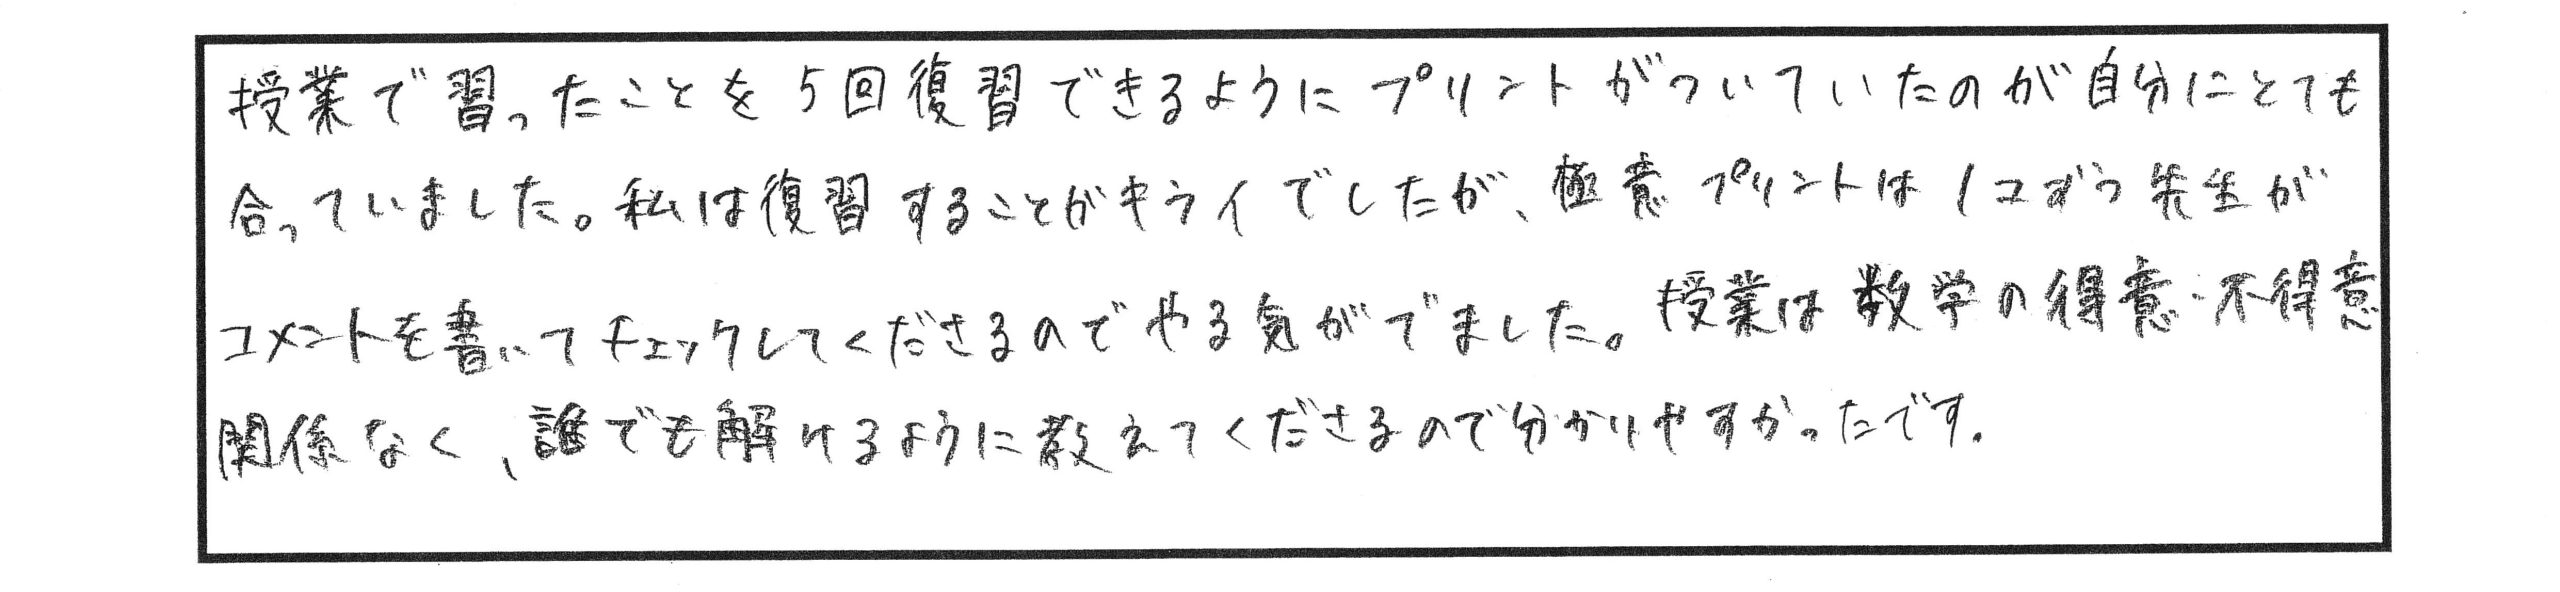 授業で習ったことを5回復習できるようにプリントがついていたのが自分にとても
合っていました。私は復習することがキライでしたが、極意プリントは1コずつ先生が
コメントを書いてチェックしてくださるのでやる気がでました。授業は数学の得意・不得意
関係なく、誰でも解けるように教えてくださるので分かりやすかったです。